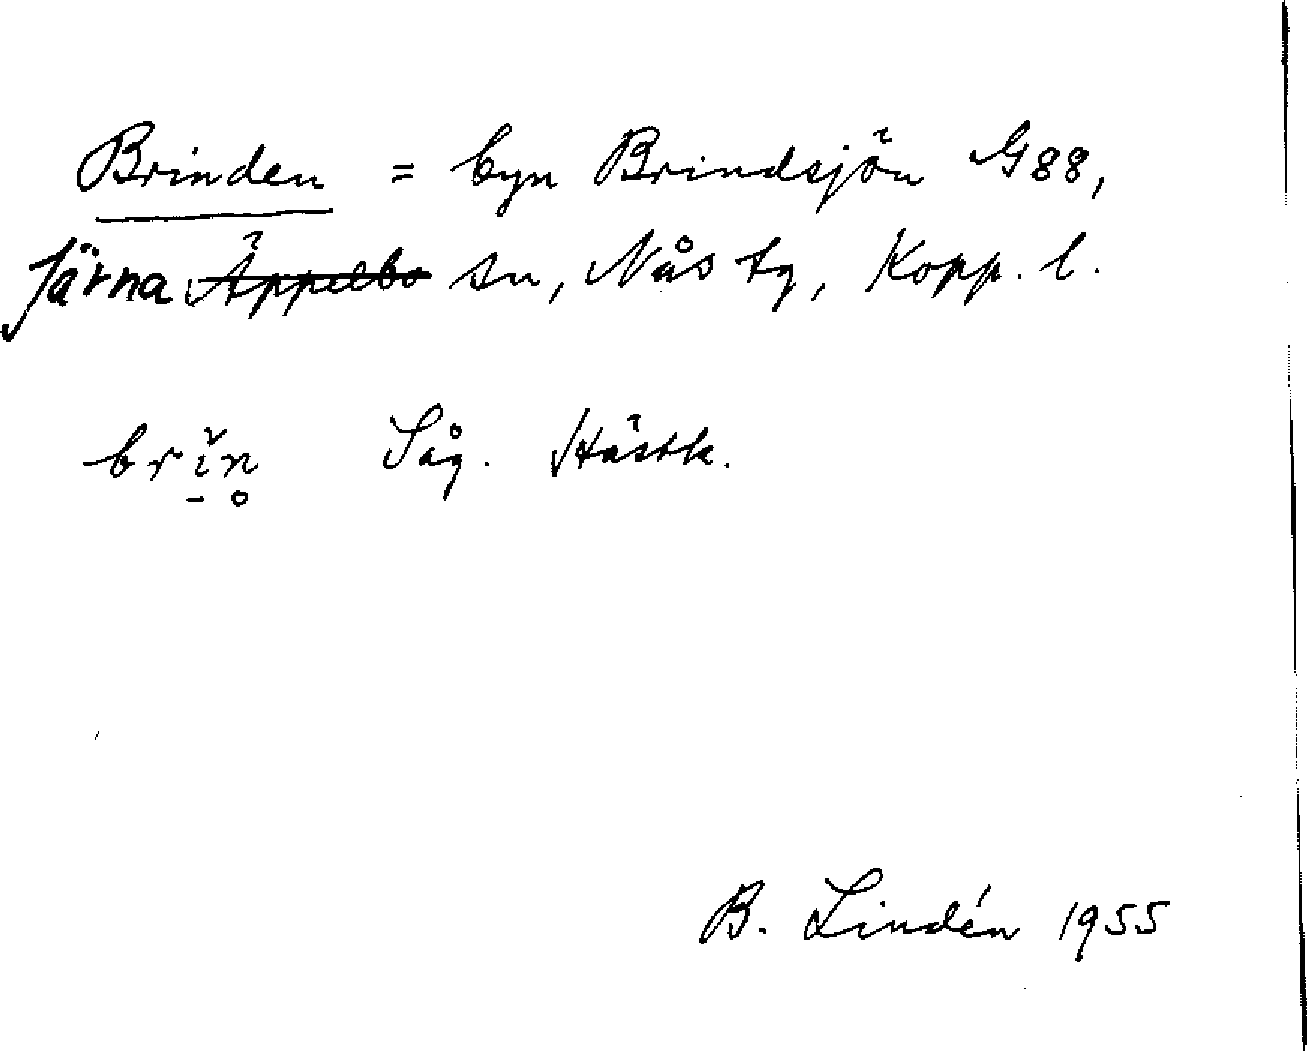 Brinden = byn Brindsjön G88,
Järna Äppelbo sn, Nås tg, Kopp. l.
brin Såg. Hästk.
B. Lindén 1955